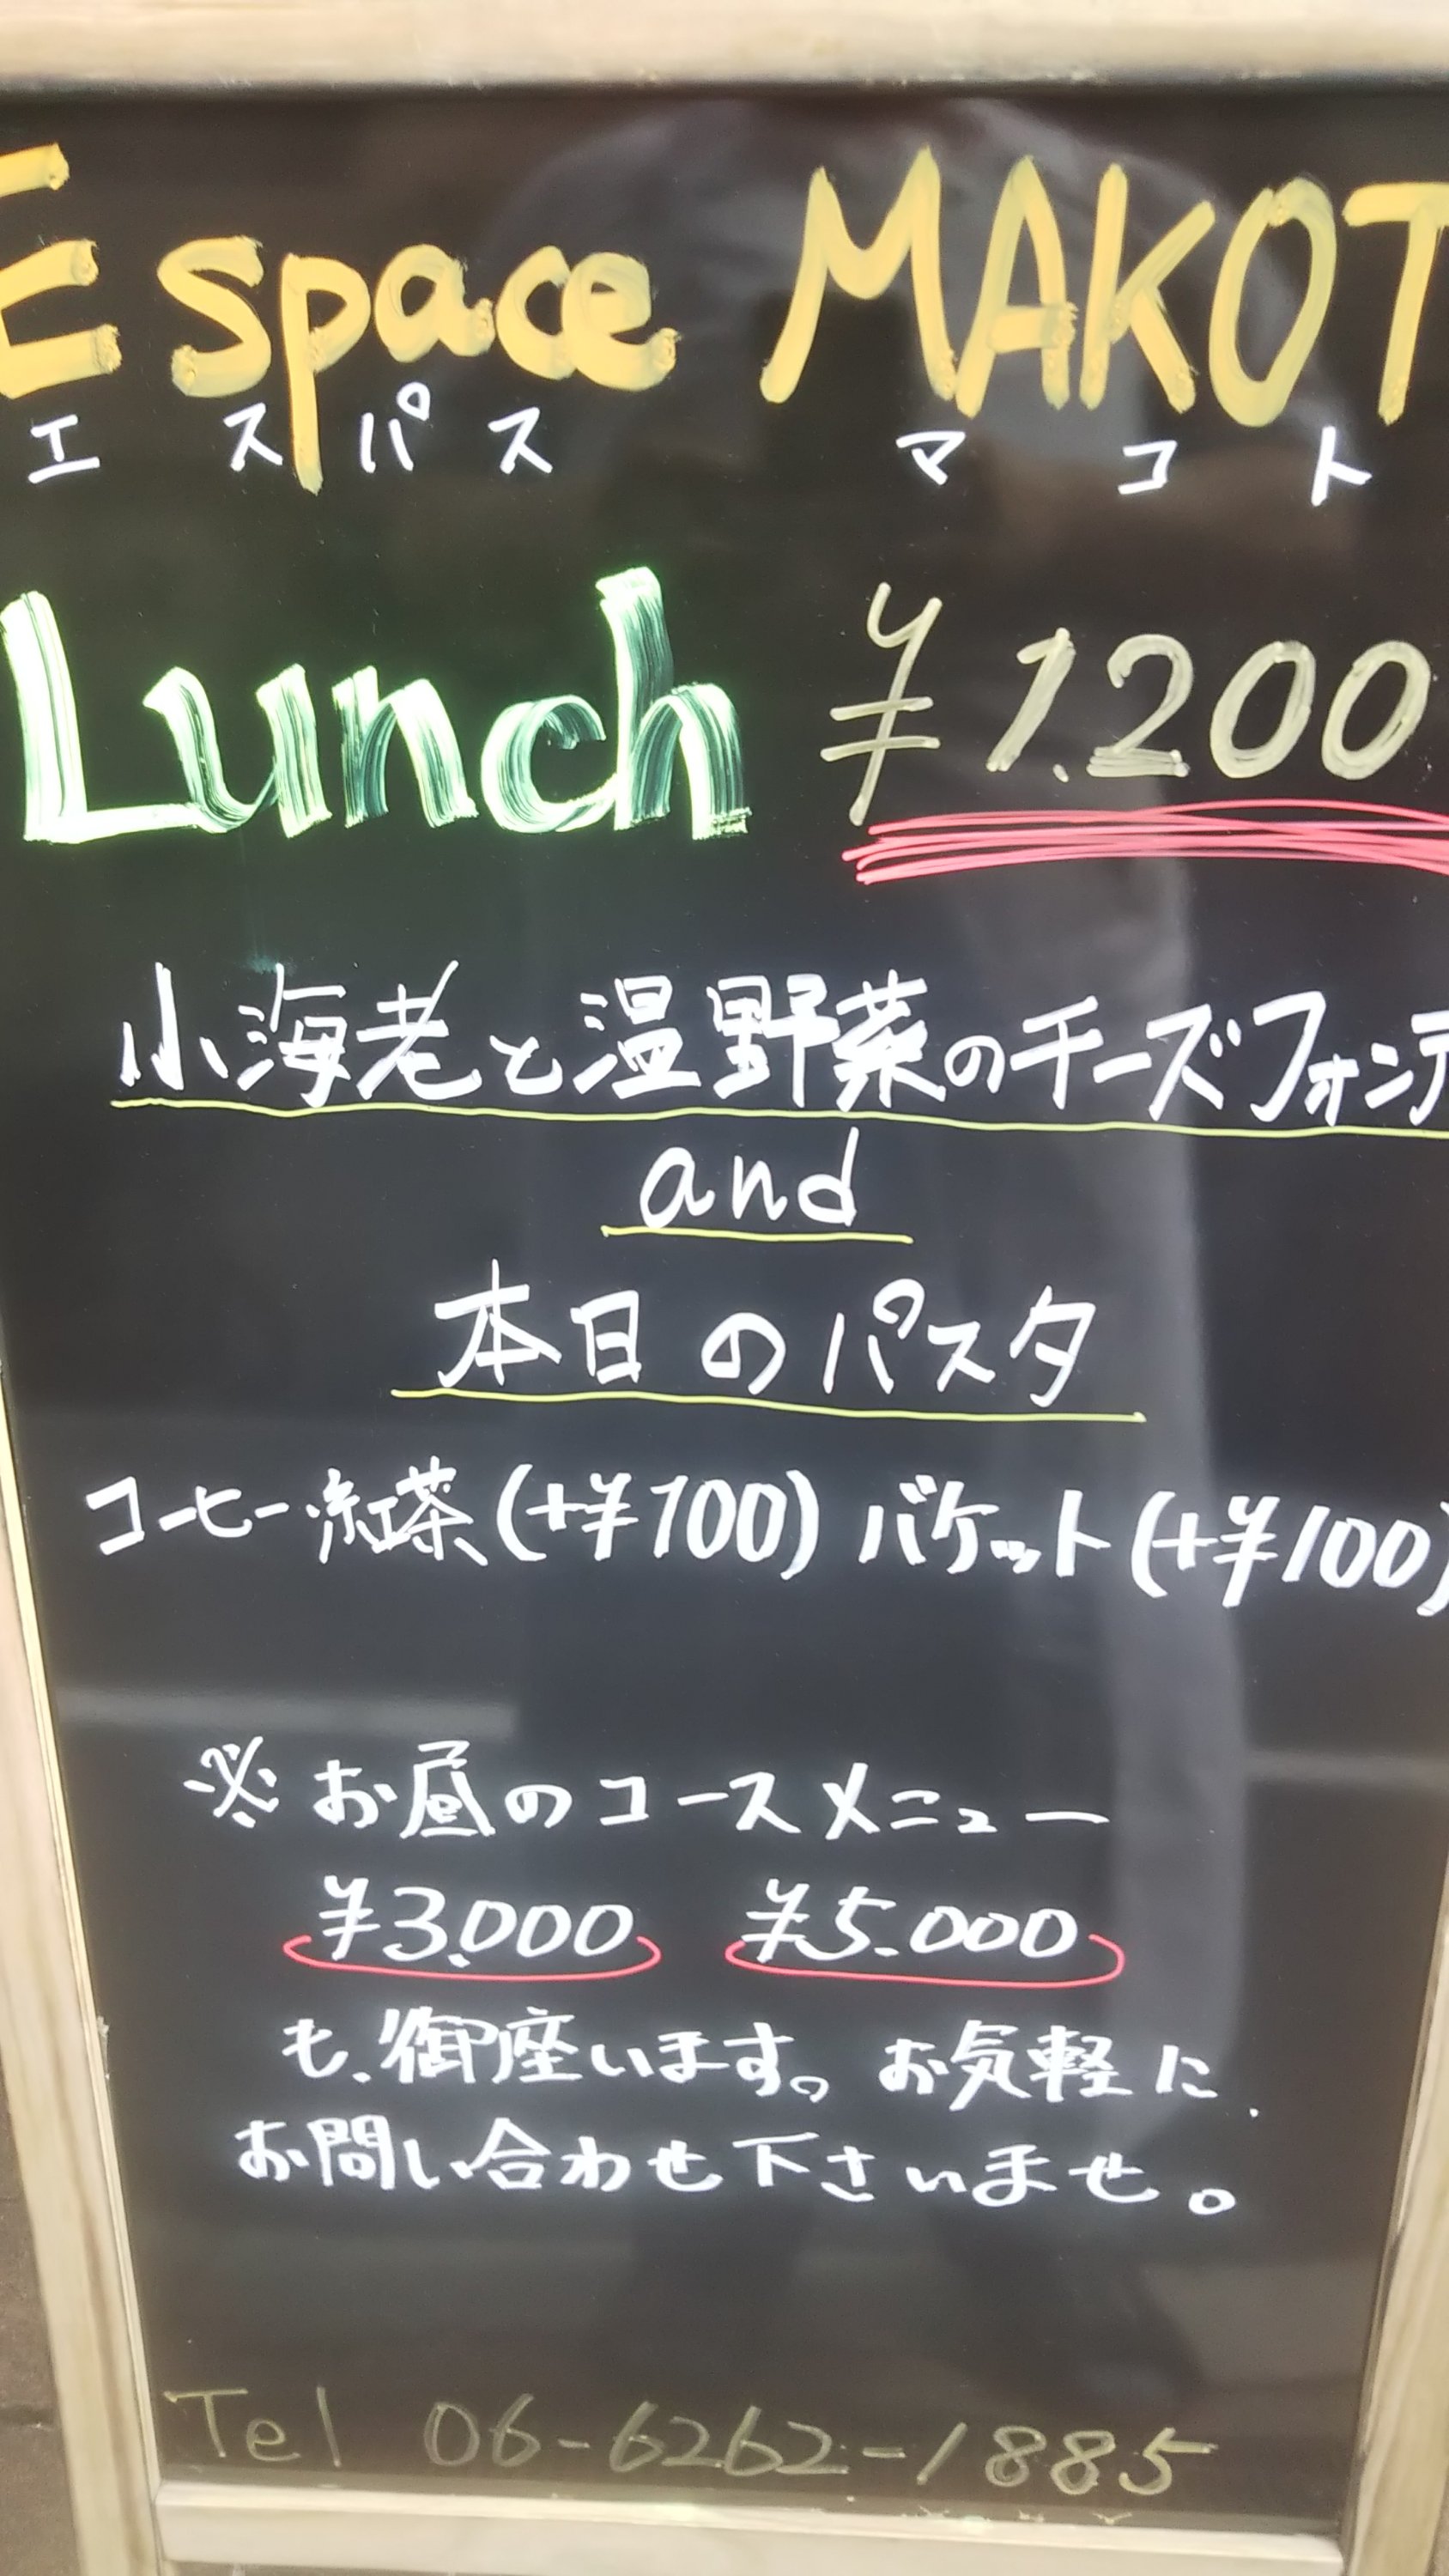 Espace MAKOT
エスパス マコト
Lunch ¥1.200
小海老と温野菜のチーズフォンデ
and
本日のパスタ
コーヒー紅茶(+¥100) バケット(+¥100)
※お昼のコースメニュー
¥3.000 ¥5.000
も、御座います。お気軽に
お問い合わせ下さいませ。
Tel 06-6262-1885